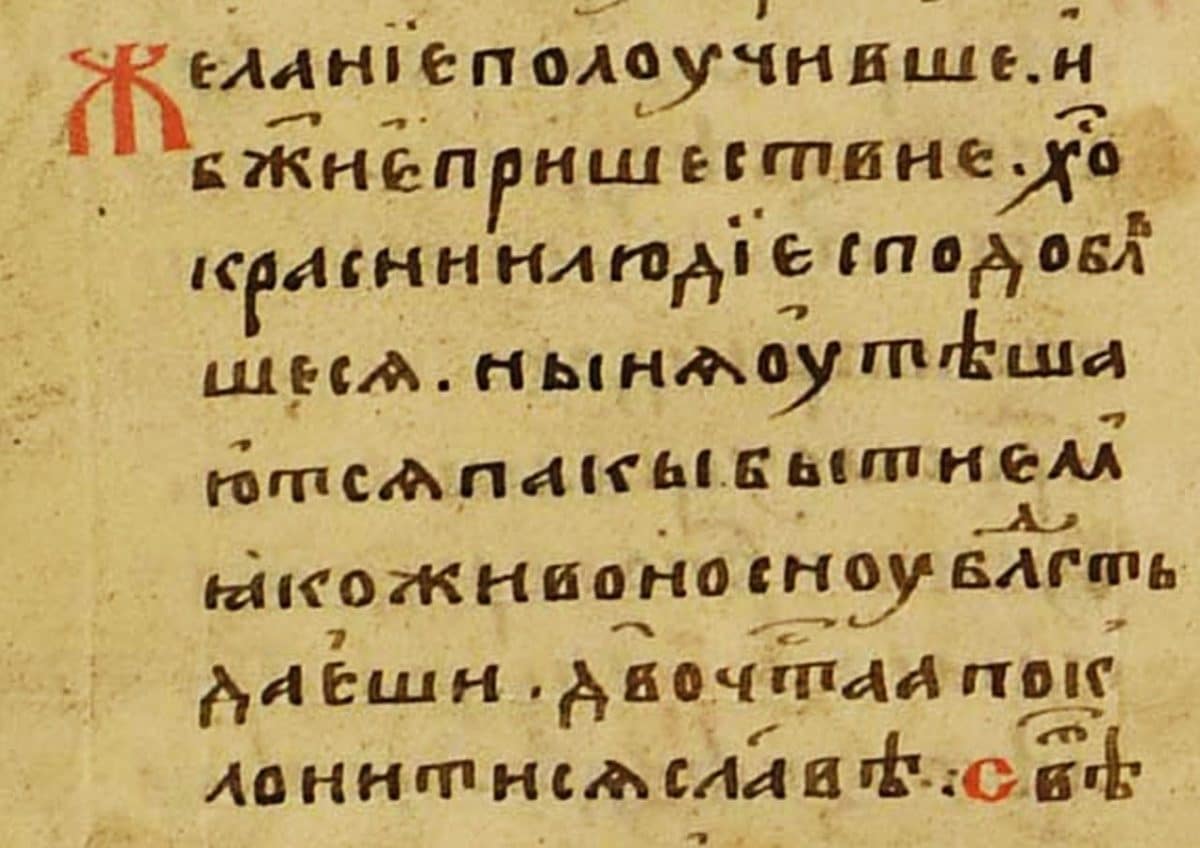 Желанїе полоучивше. и
бж҃ие пришествие. хо҃
красни людїе сподобл̾
шеся. нынѧ оутѣша
ютсѧ пакы бытием
ꙗко живоносноу бл҃гⷣть
даеши. дв҃о чт҃аа пок
лонитисѧ славѣ:· свт҃ѣ